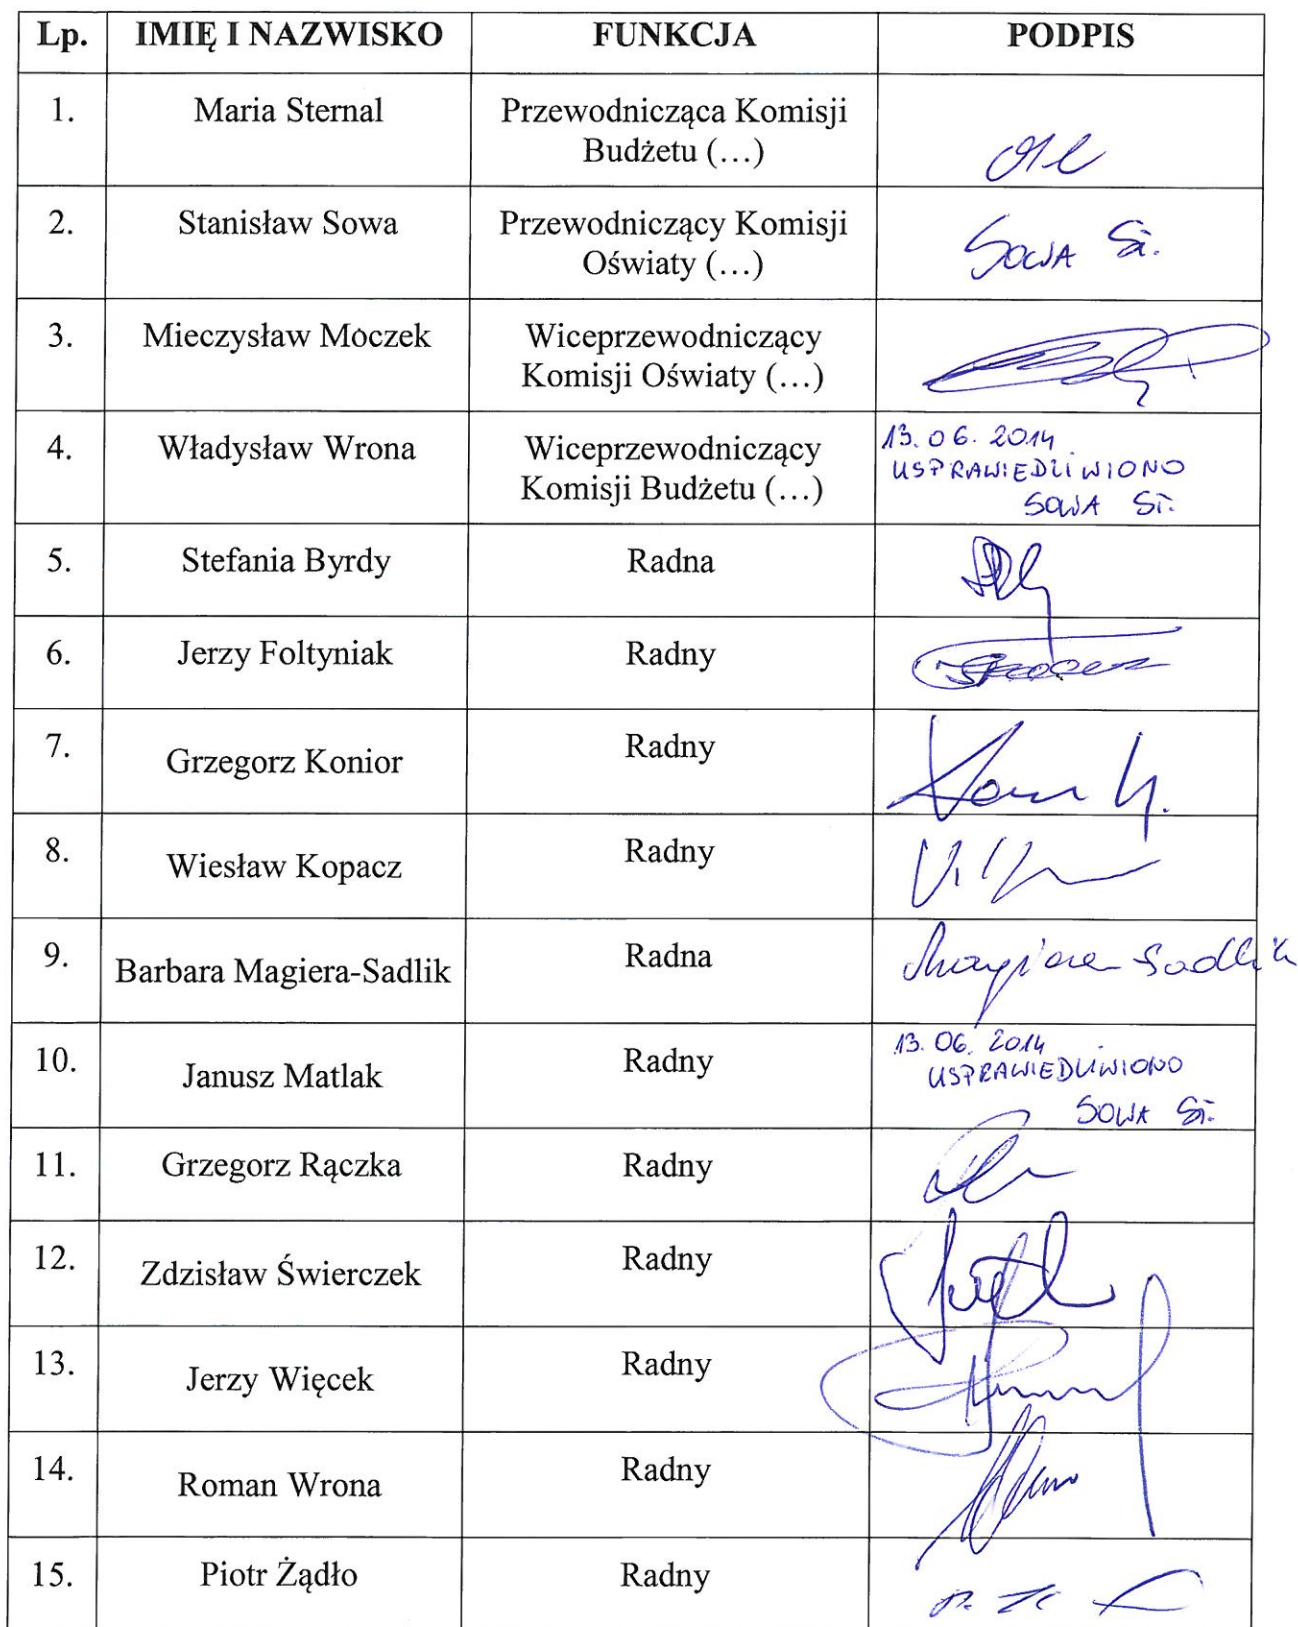 Lp. IMIĘ I NAZWISKO FUNKCJA PODPIS
1. Maria Sternal Przewodnicząca Komisji
Budżetu (…)
2. Stanisław Sowa Przewodniczący Komisji
Oświaty (…)
SOWA St.
3. Mieczysław Moczek Wiceprzewodniczący
Komisji Oświaty (…)
4. Władysław Wrona Wiceprzewodniczący
Komisji Budżetu (…)
13.06.2014
USPRAWIEDLIWIONO
SOWA St.
5. Stefania Byrdy Radna
6. Jerzy Foltyniak Radny
7. Grzegorz Konior Radny
8. Wiesław Kopacz Radny
9. Barbara Magiera-Sadlik Radna Magiera-Sadlik
10. Janusz Matlak Radny
13.06.2014
USPRAWIEDLIWIONO
SOWA St.
11. Grzegorz Rączka Radny
12. Zdzisław Świerczek Radny
13. Jerzy Więcek Radny
14. Roman Wrona Radny
15. Piotr Żądło Radny